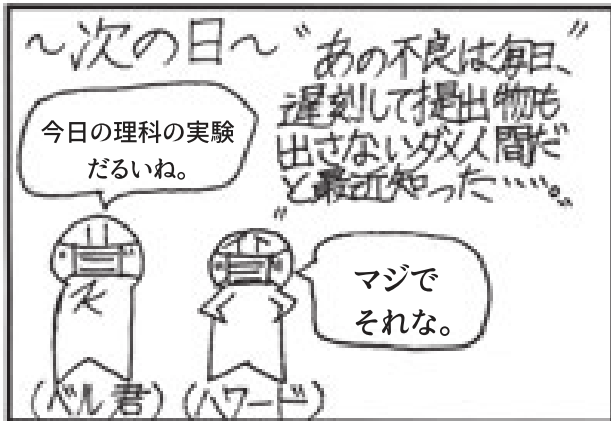 ～次の日～
“あの不良は毎日、
遅刻して提出物も
出さないダメ人間だ
と最近知った……。”
今日の理科の実験
だるいね。
マジで
それな。
(ベル君)
(ハワード)